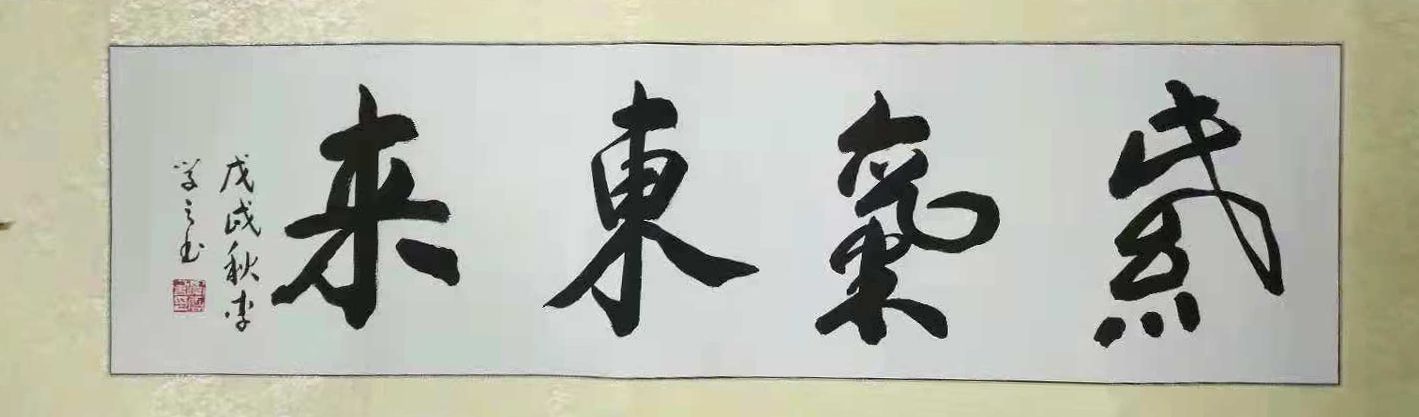 紫氣東来
戊戌秋李
学之书